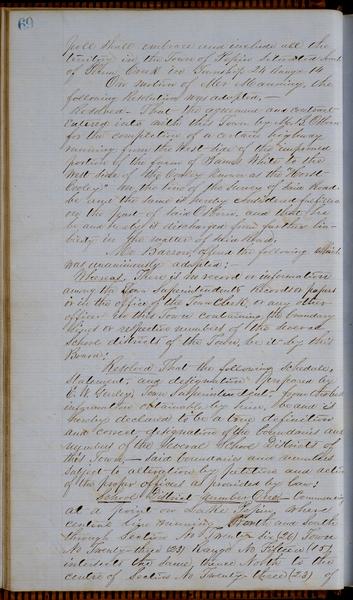 69
poll shall embrace and include all the
territory in the Town of Pepin situated South
of Plum Creek Township 24 Range 14
On motion of Mr Manning, the
following Resolution was adopted,—
Resolved. That the agreement and contract
entered into with this Town by
for the completion of a certain highway
running from the West side of the improved
portion of the farm of James White to the
West side of the Cooley known as the
Cooley" on the line of the survey of said Road
be and the same is hereby
on the part of said and that he
be and hereby is discharged from further lia-
bility in the matter of said Road,
Mr Barron, offered the following which
was unanimously adopted;
Whereas, There is no record or information
among the Town Superintendents records or papers
or in the office of the Town Clerk, or any other
officer in this Town containing the boundary
lines or respective numbers of the several
School districts of the Town, be it by this
Board;
Resolved That the following schedule,
statement, and designation prepared by
E. W. Town Superintendent, from the best
information obtainable by him, be and is
hereby declared to be a true definition
and correct designation of the boundaries and
numbers of the several School Districts of
this Town,— said boundaries and numbers
subject to alteration by petition and action
of the proper officers as provided by law;
School District Number One. Commencing
at a point on Lake Pepin where
central line running North and South
through Section No Twenty six (26) Town
No Twenty-three (23) Range No Fifteen (15)
intersects the same, thence North to the
centre of Section No Twenty three (23) of